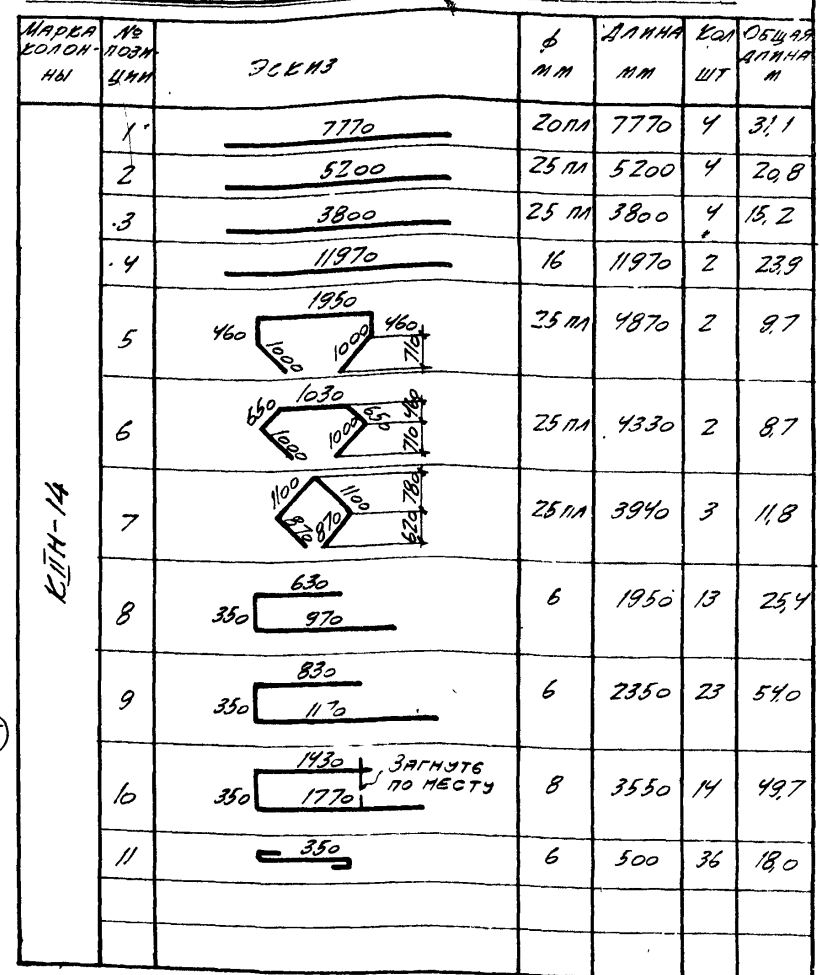 МАРКА КОЛОННЫ № ПОЗИЦИИ ЭСКИЗ ϕ ММ ДЛИНА ММ КОЛ ШТ ОБЩАЯ ДЛИНА М
КIIН-14
1 7770 20пл 7770 4 31,1
2 5200 25 пл 5200 4 20,8
3 3800 25 пл 3800 4 15,2
4 11970 16 11970 2 23,9
5 1950 460 460 1000 1000 710 25 пл 4870 2 9,7
6 1030 650 650 460 1000 1000 710 25 пл 4330 2 8,7
7 1100 1100 780 870 870 620 25 пл 3940 3 11,8
8 630 350 970 6 1950 13 25,4
9 830 350 1170 6 2350 23 54,0
10 1430 350 1770 ЗАГНУТЬ ПО МЕСТУ 8 3550 14 49,7
11 350 6 500 36 18,0